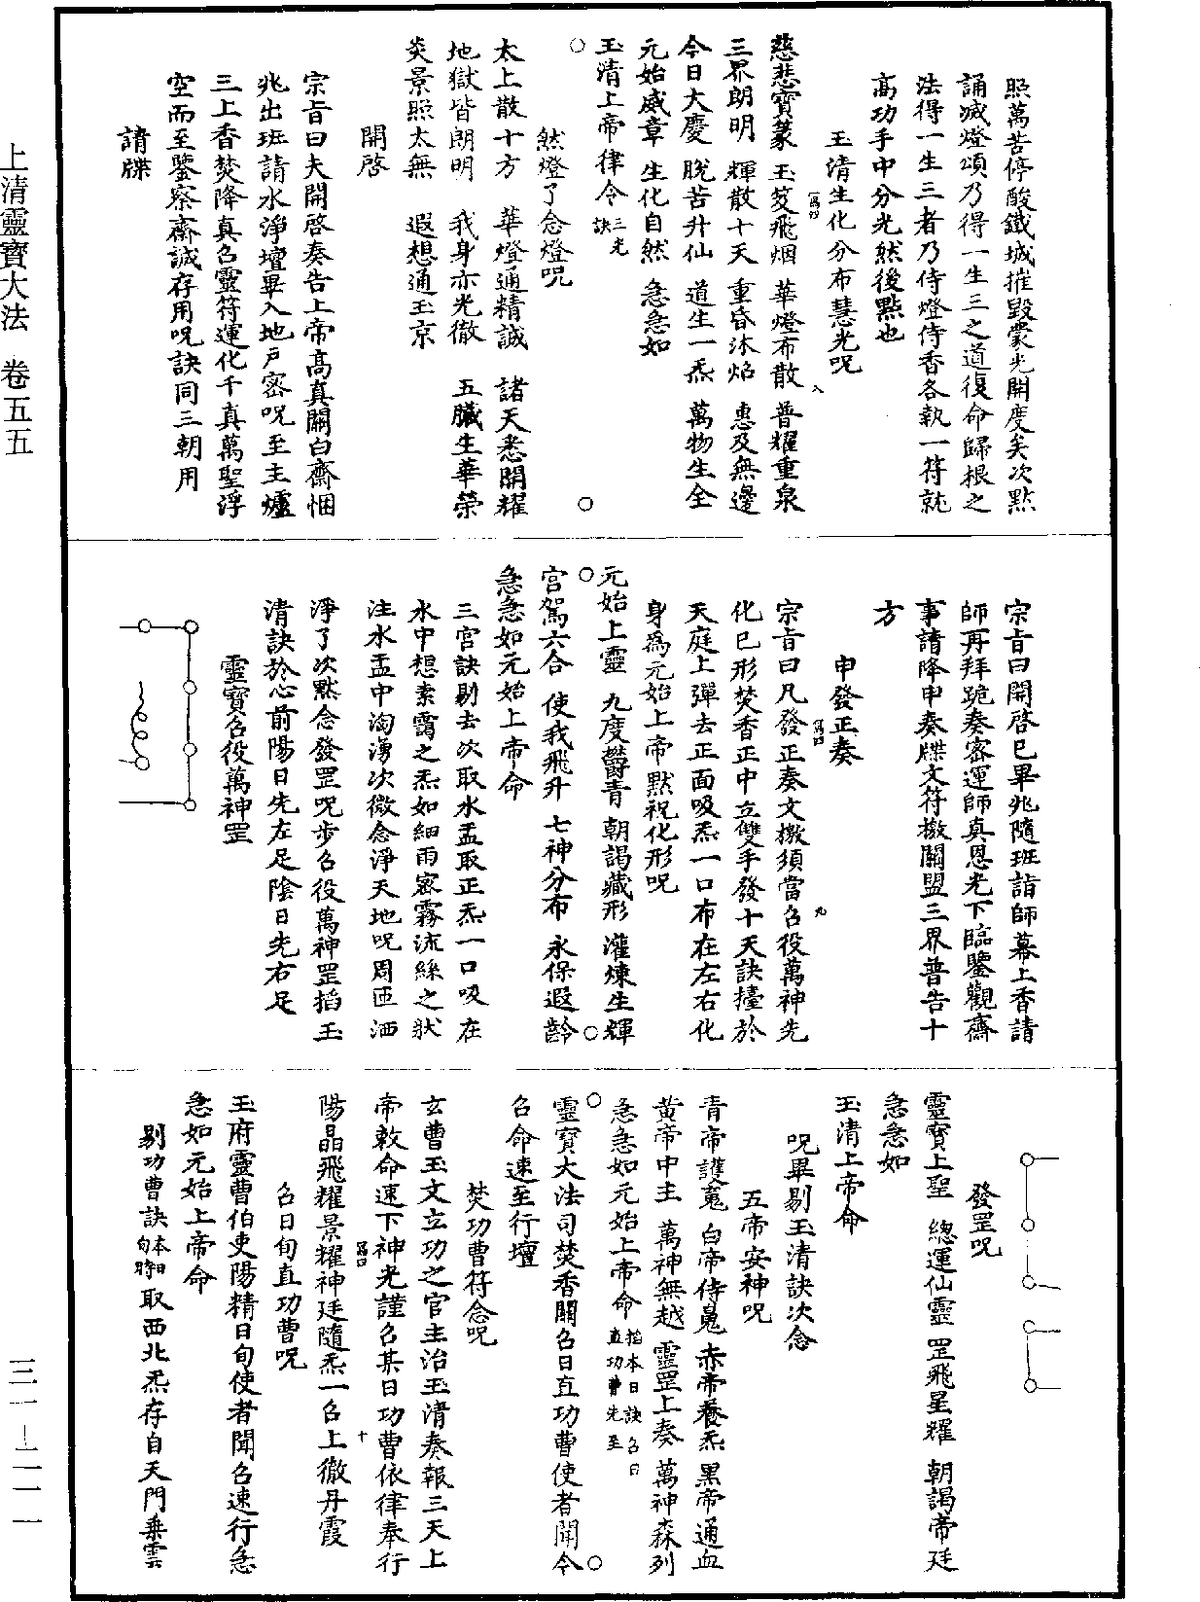 照萬苦停酸鐵城摧毀蒙光開度矣次點
誦滅燈頌乃得一生三之道復命歸根之
法得一生三者乃侍燈侍香各執一符就
高功手中分光然後點也
玉清生化分布慧光呪
慈悲寶篆　玉芨飛烟　華燈布散　普耀重泉
三界朗明　輝散十天　重昏沐焰　惠及無邊
今日大慶　脫苦升仙　道生一炁　萬物生全
元始威章　生化自然　急急如
玉清上帝律令三光訣
然燈了念燈呪
太上散十方　華燈通精誠　諸天悉開耀
地獄皆朗明　我身亦光徹　五臟生華榮
炎景照太無　遐想通玉京
開啓
宗旨曰夫開啓奏告上帝高真關白齋悃
兆出班請水淨壇畢入地戶密呪至主爐
三上香焚降真召靈符運化千真萬聖浮
空而至鑒察齋誠存用呪訣同三朝用
請牒
宗旨曰開啓已畢兆隨班詣師幕上香請
師再拜跪奏密運師真恩光下臨鑒觀齋
事請降申奏牒文符檄關盟三界普告十
方
申發正奏
宗旨曰凡發正奏文檄須當召役萬神先
化已形焚香正中立雙手發十天訣擡於
天庭上彈去正面吸炁一口布在左右化
身爲元始上帝默祝化形呪
元始上靈　九度鬱青　朝謁藏形　灌煉生輝
宮駕六合　使我飛升　七神分布　永保遐齡
急急如元始上帝命
三宮訣剔去次取水盂取正炁一口吸在
水中想素靄之炁如細雨密霧流絲之狀
注水盂中淘湧次微念淨天地呪周匝洒
淨了次默念發罡呪步召役萬神罡掐玉
清訣於心前陽日先左足陰日先右足
靈寶召役萬神罡
發罡呪
靈寶上聖　總運仙靈　罡飛星耀　朝謁帝廷
急急如
玉清上帝命
呪畢剔玉清訣次念
五帝安神呪
青帝護䰟　白帝侍魄　赤帝養炁　黑帝通血
黃帝中主　萬神無越　靈罡上奏　萬神森列
急急如元始上帝命掐本日訣召日直功曹先至
靈寶大法司焚香關召日直功曹使者聞令
召命速至行壇
焚功曹符念呪
玄曹玉文立功之官主治玉清奏報三天上
帝敕命速下神光謹召某日功曹依律奉行
陽晶飛耀景耀神廷隨炁一召上徹丹霞
召日旬直功曹呪
玉府靈曹伯吏陽精日旬使者聞召速行急
急如元始上帝命
剔功曹訣本旬日時取西北炁存自天門乘雲
上清靈寶大法　卷五五
三一—二一一